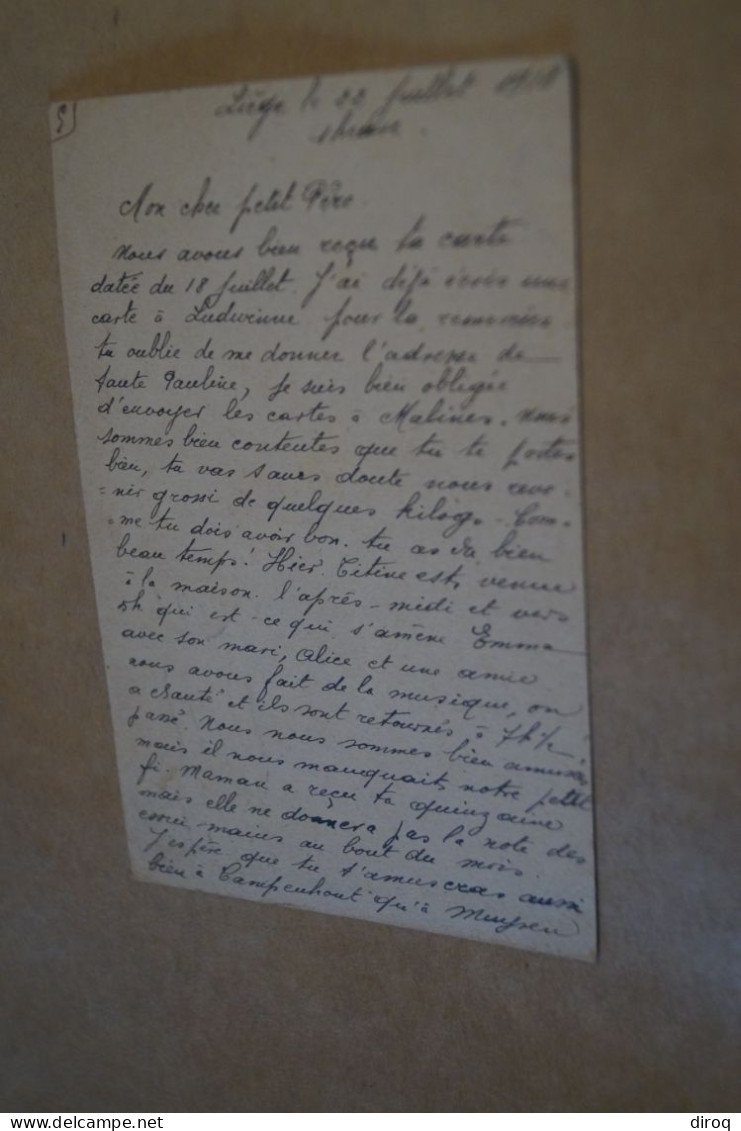 5
Liège le 22 Juillet
Mon cher petit Père
Nous avons bien reçu ta carte
datée du 18 Juillet. J'ai déjà écris une
carte à Ludwinne pour la remercier
tu oublie de me donner l'adresse de
tante Pauline, je suis bien obligée
d'envoyer les cartes à Malines. Nous
sommes bien contentes que tu te portes
bien, ta vas sans doute nous reve-
-nir grossi de quelques kilogs. Com-
-me tu dois avoir bon. tu as du bien
beau temps! Hier Titine est, venue
à la maison l'après-midi et vers
5h qui est-ce qui s'amène Emma
avec son mari, Alice et une amie
nous avons fait de la musique, on
a chanté et ils sont retournés à 7h 1/2
passé. Nous nous sommes bien amusés
mais il nous manquait, notre petit
fi. Maman a reçu ta quinzaine
mais elle ne donnera pas la note des
mains au bout du mois.
J'espère que tu t'amuseras aussi
bien à Campenhout qu'à Muysen
delcampe.net
diroq